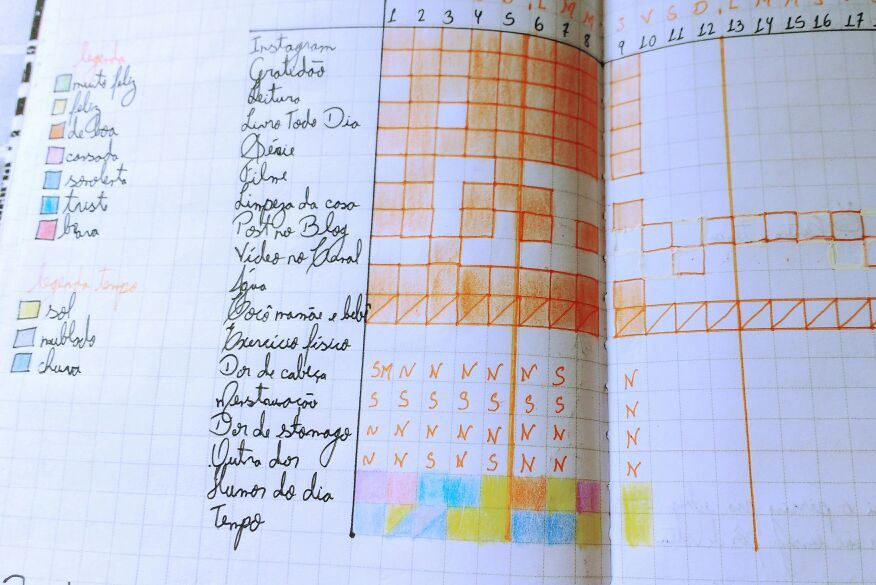 S D L M M S V S D L M M S S
1 2 3 4 5 6 7 8 9 10 11 12 13 14 15 16 17
legenda
muito feliz
feliz
de boa
cansada
sonolenta
trist
brava
legenda tempo
sol
nublado
chuva
Instagram
Gratidão
Leitura
Livro Todo Dia
Série
Filme
Limpeza da casa
Post no Blog
Vídeo no Canal
Água
Cocô mamãe e bebê
Exercício físico
Dor de cabeça SM N N N N N S N
Menstruação S S S S S S S N
Dor de stomago N N N N N N N N
Outra dor N N S N S N N N
Humor do dia
Tempo